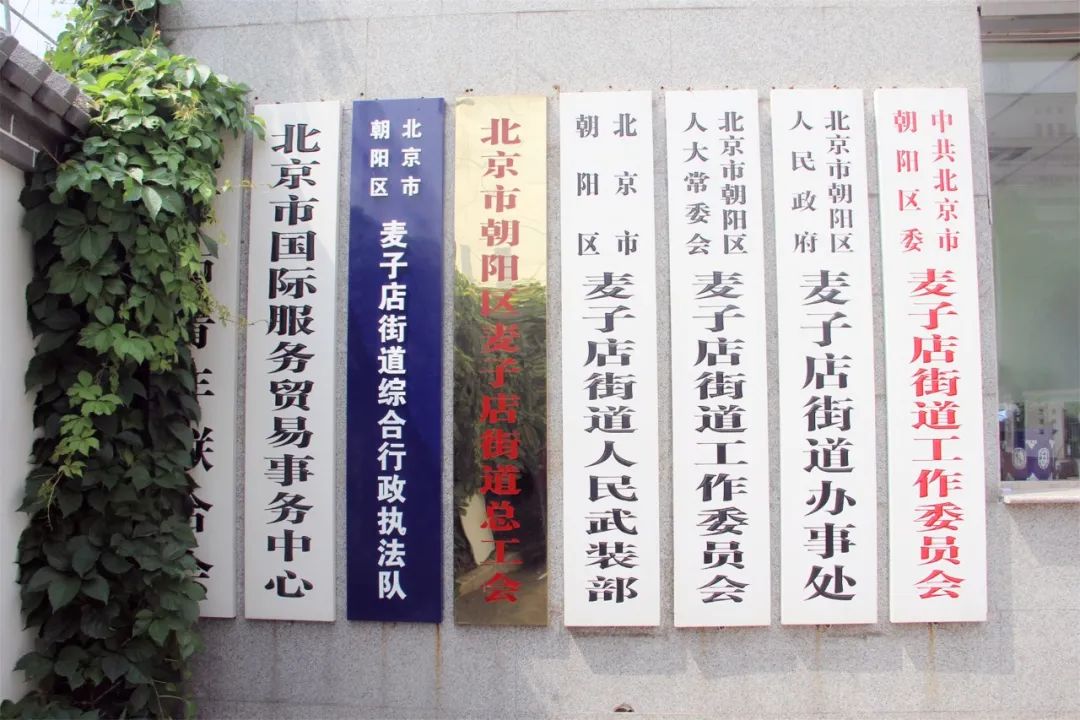 中共北京市
朝阳区委
麦子店街道工作委员会
北京市朝阳区
人民政府
麦子店街道办事处
北京市朝阳区
人大常委会
麦子店街道工作委员会
北京市
朝阳区
麦子店街道人民武装部
北京市朝阳区麦子店街道总工会
北京市
朝阳区
麦子店街道综合行政执法队
北京市国际服务贸易事务中心